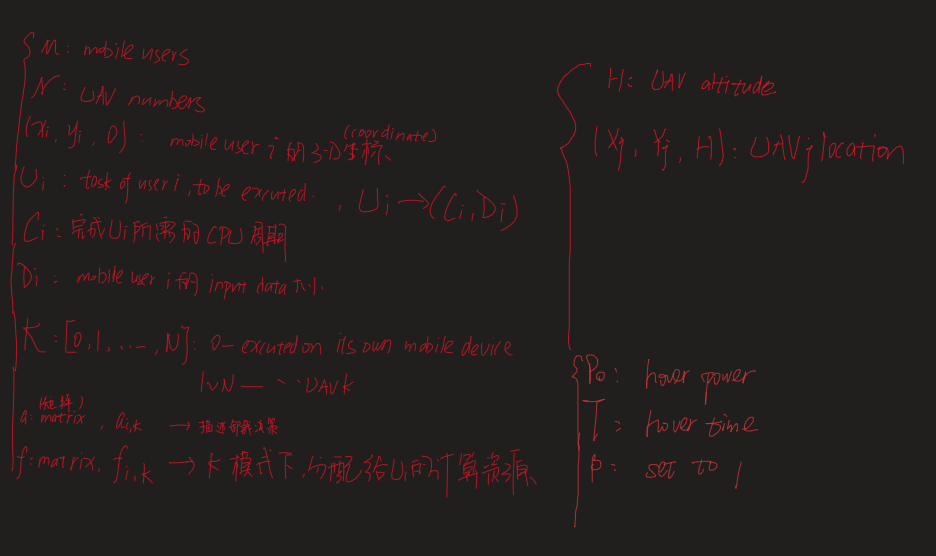 M: mobile users
N: UAV numbers
(xi, yi, 0): mobile user i 的 3-D坐标 (coordinate)
Ui: task of user i, to be excuted. , Ui → (Ci, Di)
Ci: 完成Ui所需的CPU周期
Di: mobile user i 的 input data 大小.
K: [0, 1, ..., N]: 0— excuted on its own mobile device
1~N — ·· UAV k
a: matrix (矩阵), ai,k → 描述卸载决策
f: matrix, fi,k → K 模式下,分配给Ui的计算资源
H: UAV attitude
(Xj, Yj, H): UAV j location
Po: hover power
T: hover time
p: set to 1